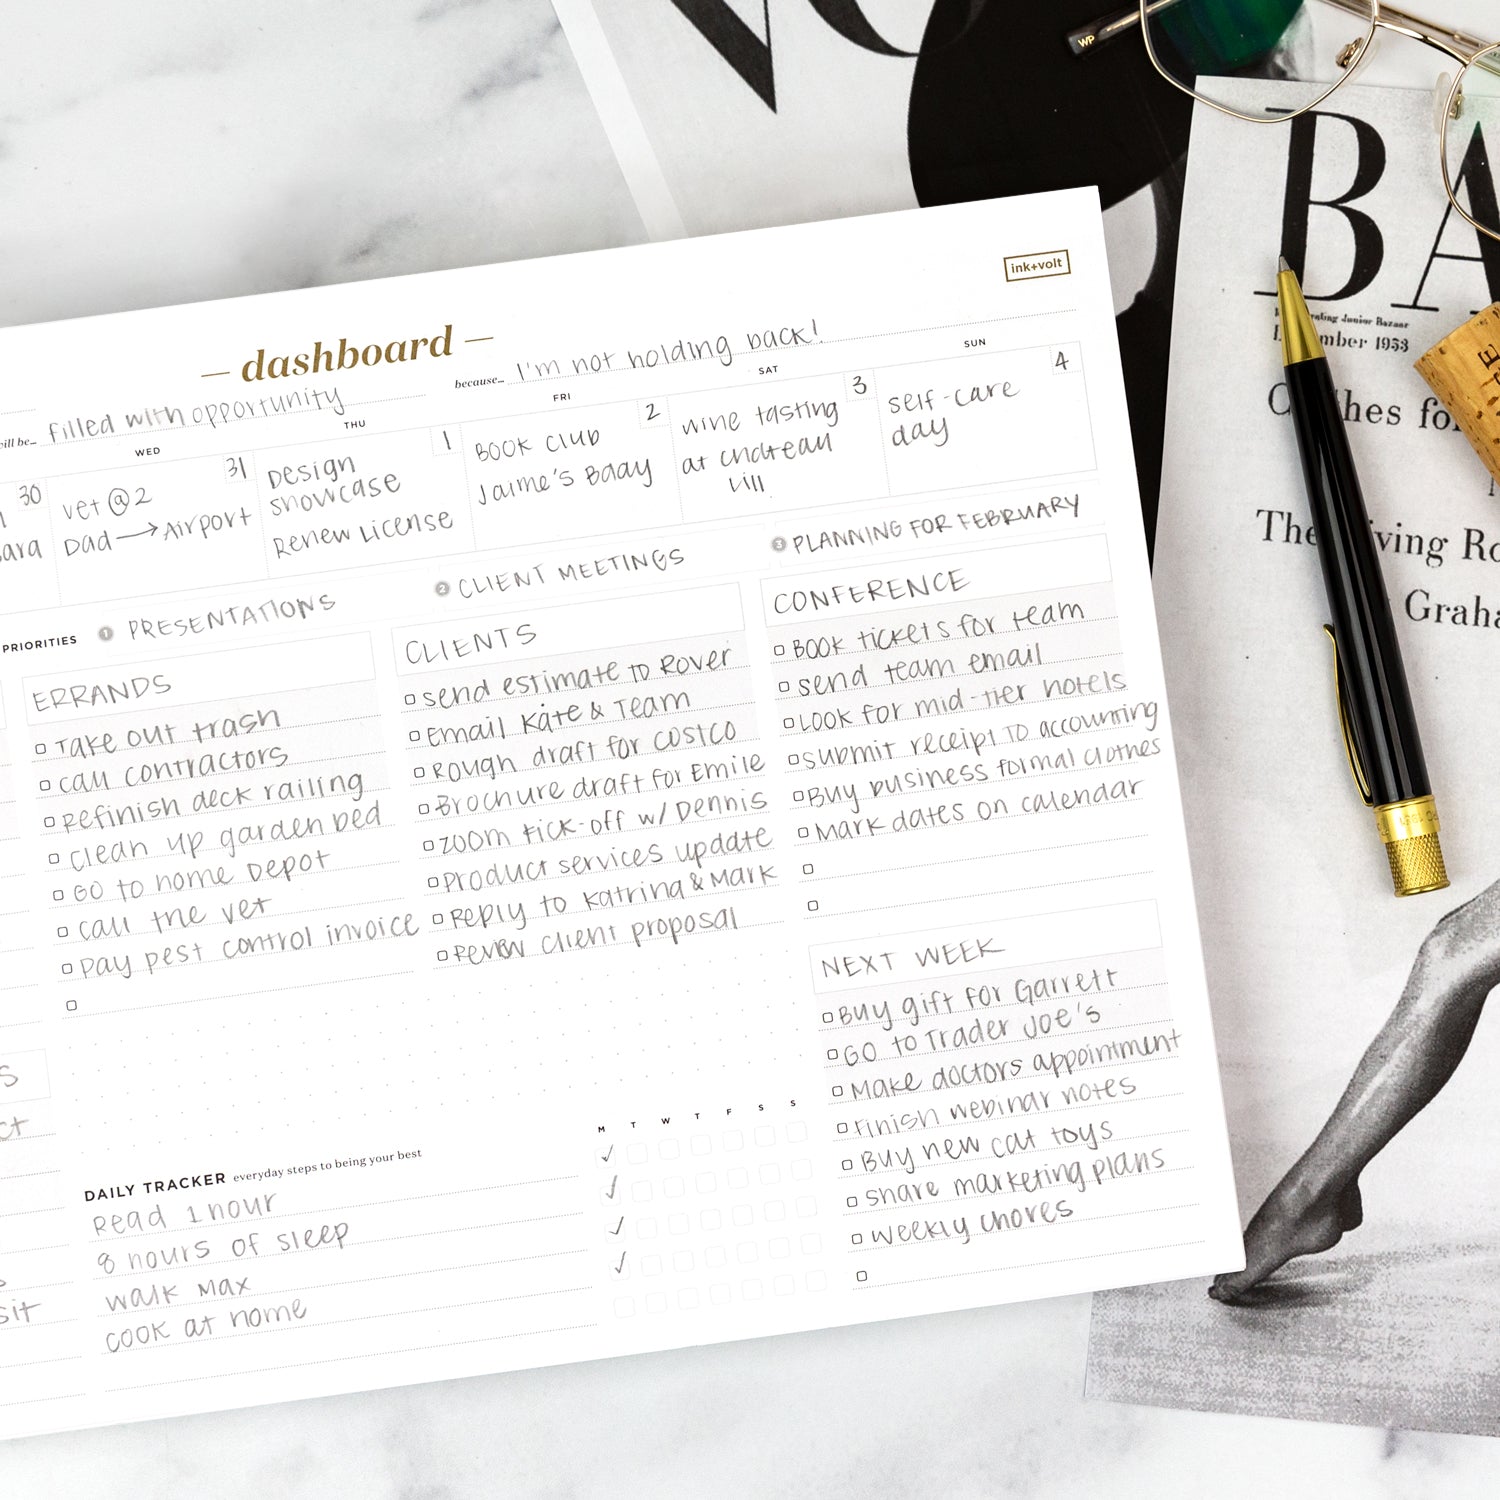 WP
BA
December 1953
Clothes for
The Living Ro
Graha
ink+volt
— dashboard —
will be... filled with opportunity
because... I'm not holding back!
WED
THU
FRI
SAT
SUN
30
31
vet @ 2
Dad → Airport
1
Design
showcase
Renew License
2
Book club
Jaime's Baday
3
wine tasting
at chateau
vill
4
self-care
day
PRIORITIES
1 PRESENTATIONS
2 CLIENT MEETINGS
3 PLANNING FOR FEBRUARY
ERRANDS
Take out trash
call contractors
Refinish deck railing
clean up garden bed
Go to home Depot
call the vet
pay pest control invoice
CLIENTS
send estimate to Rover
Email Kate & Team
Rough draft for costco
Brochure draft for Emile
zoom kick-off w/ Dennis
Product services update
Reply to Katrina & Mark
Review client proposal
CONFERENCE
Book tickets for team
send team email
Look for mid-tier hotels
submit receipt to accounting
Buy business formal clothes
Mark dates on calendar
NEXT WEEK
Buy gift for Garrett
Go to Trader Joe's
Make doctors appointment
Finish webinar notes
Buy new cat toys
share marketing plans
weekly chores
DAILY TRACKER everyday steps to being your best
M T W T F S S
Read 1 hour
8 hours of sleep
walk Max
cook at home